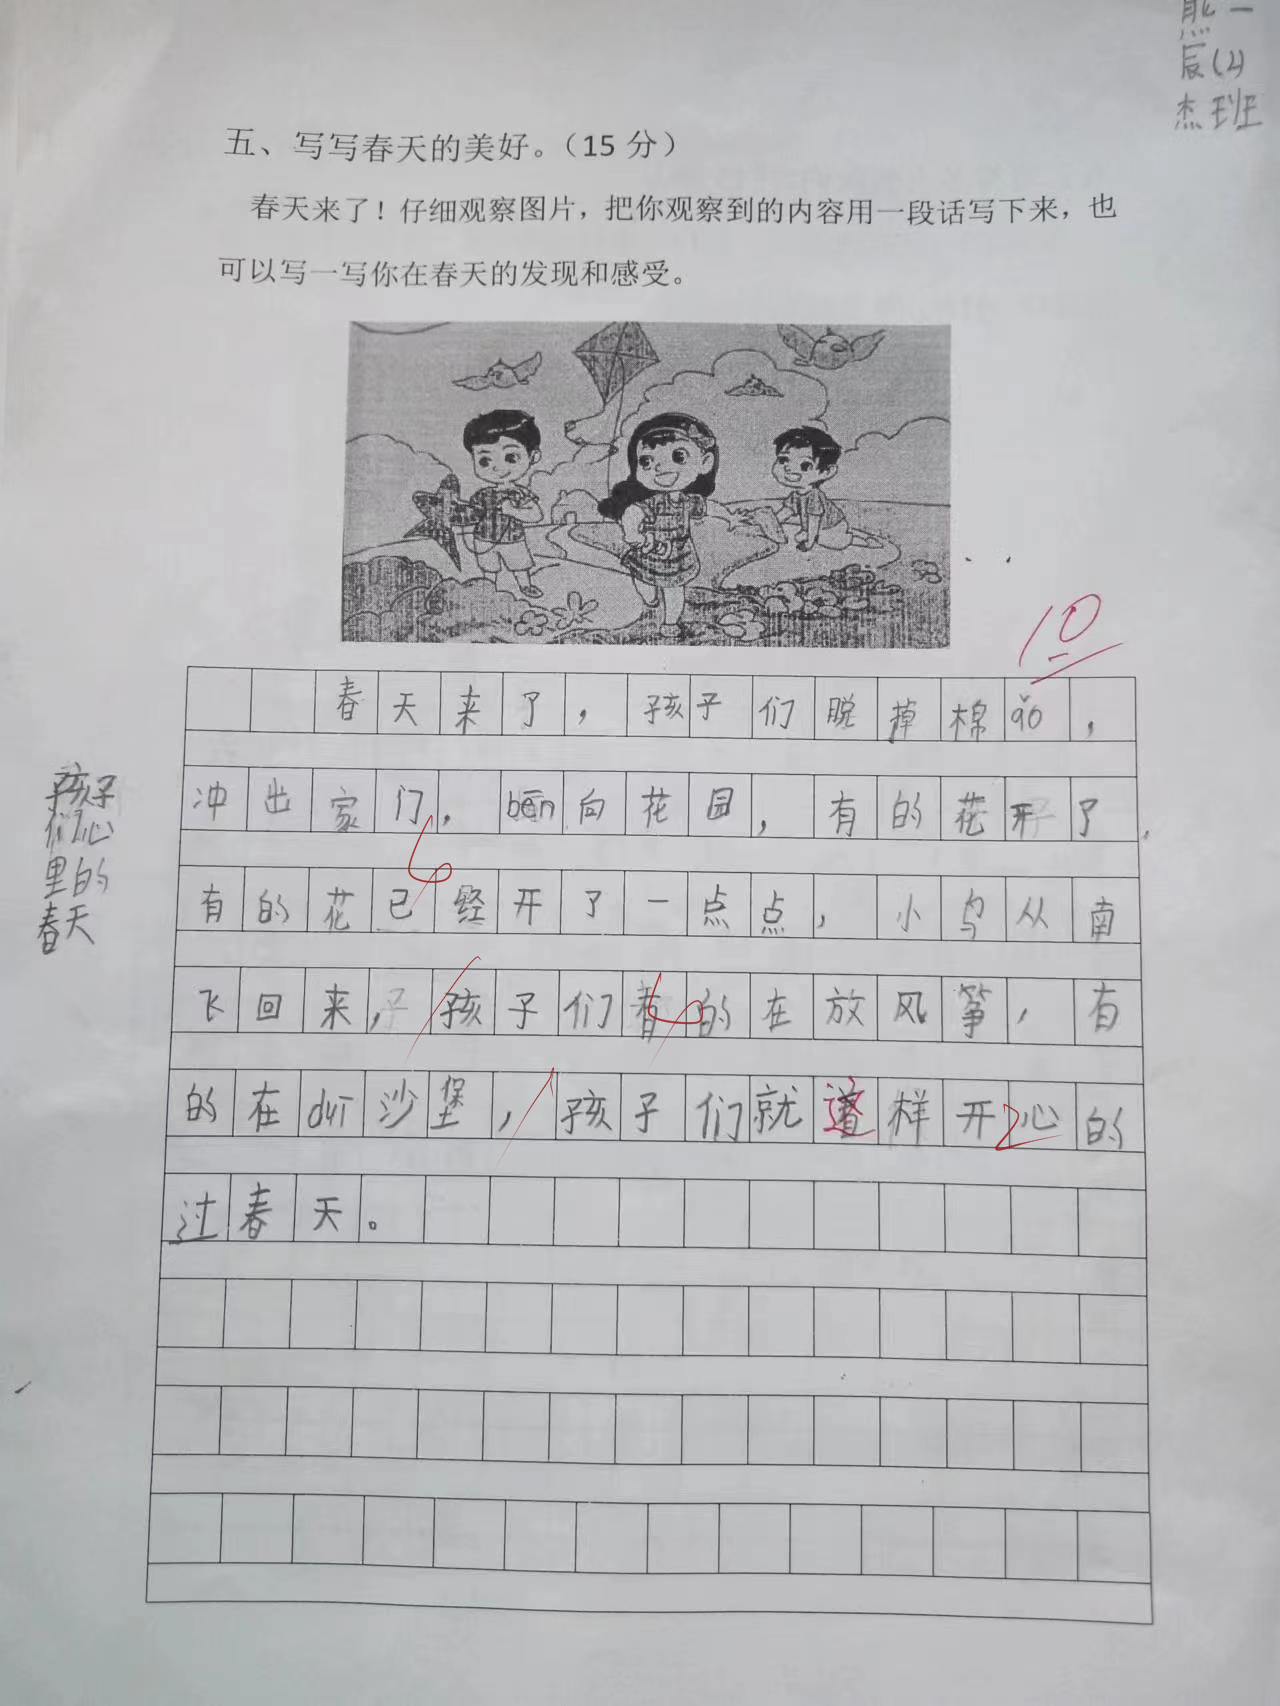 熊一
辰(2)
杰班
五、写写春天的美好。(15 分)
春天来了！仔细观察图片，把你观察到的内容用一段话写下来，也
可以写一写你在春天的发现和感受。
10
春天来了，孩子们脱掉棉ǎo，
冲出家门，bēn向花园，有的花开了，
有的花已经开了一点点，小鸟从南
飞回来，孩子们有的在放风筝，有
的在duī沙堡，孩子们就这样开心的
过春天。
孩子
们心
里的
春天